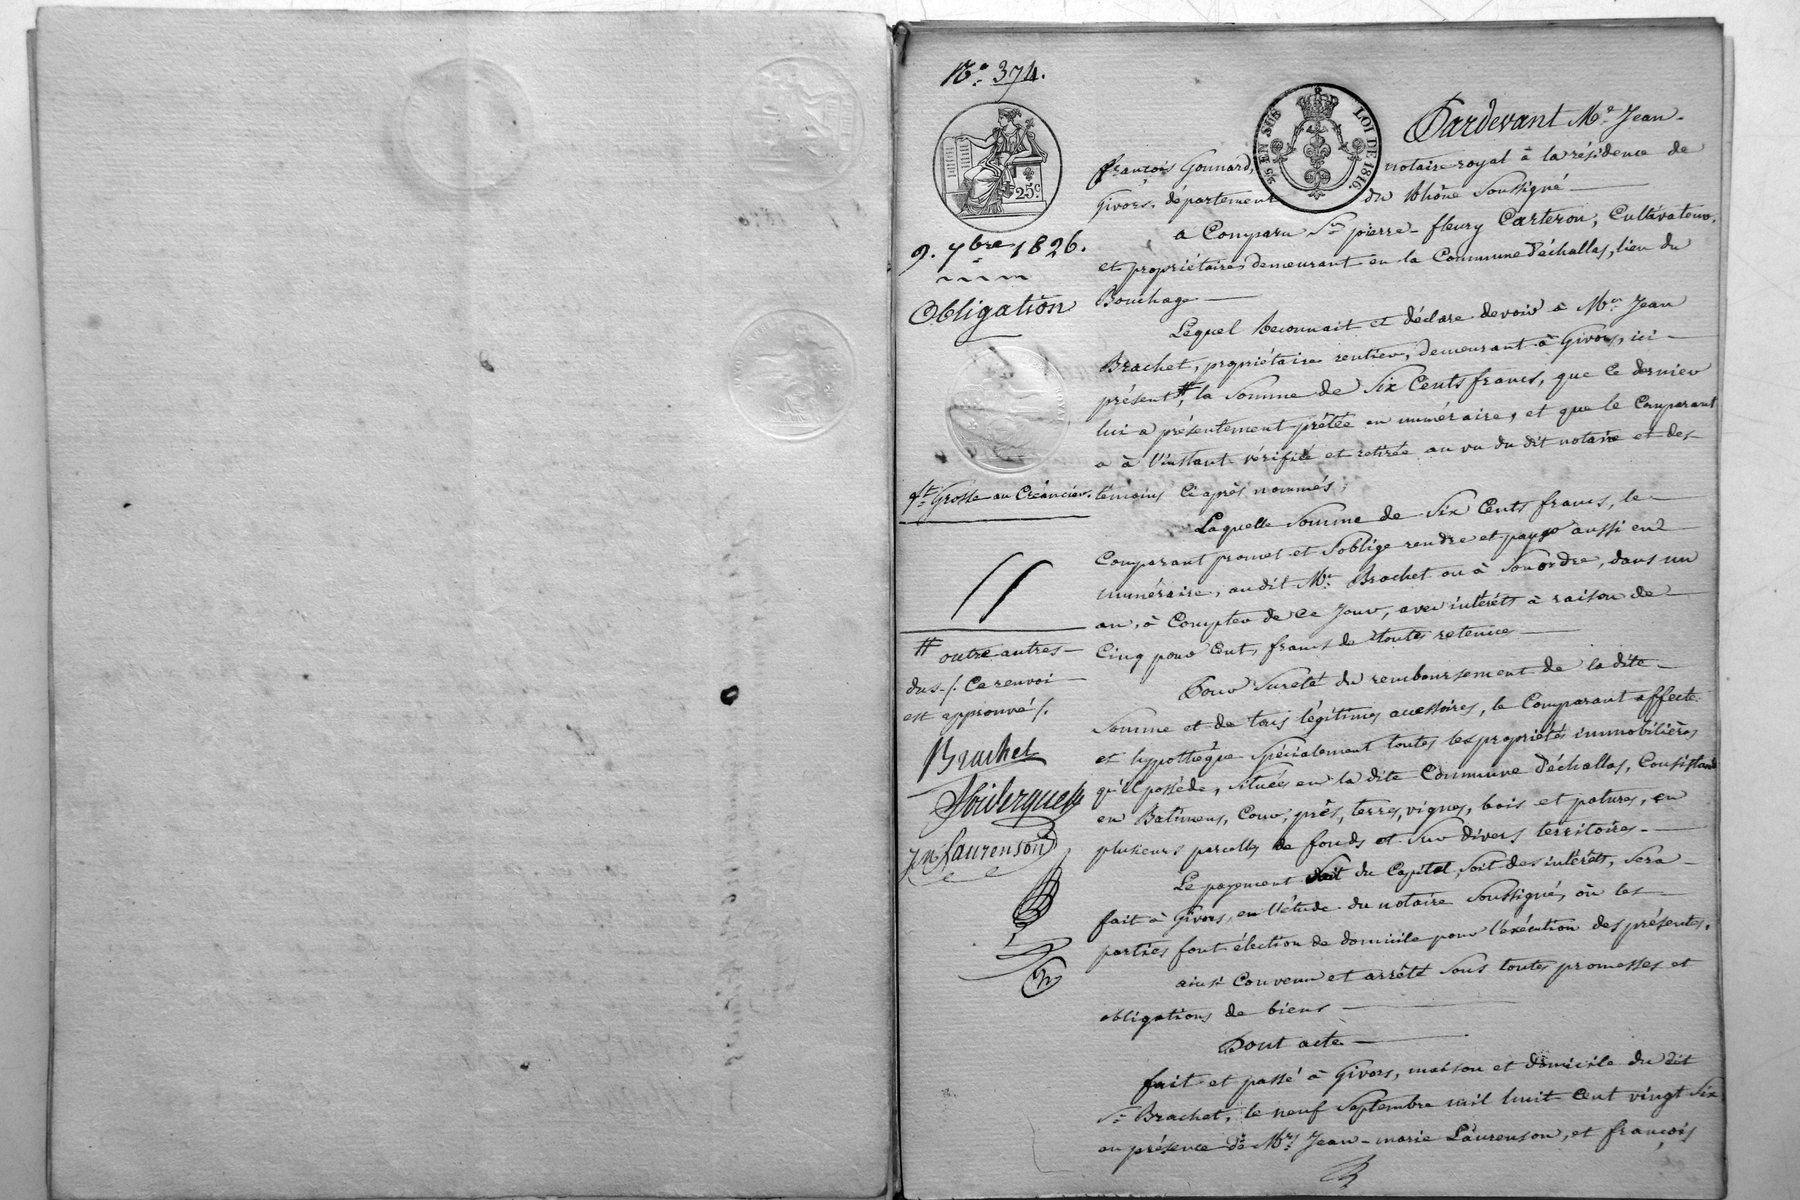 N.° 374.
25.c
5/5 EN SUS LOI DE 1816.
9. 7bre 1826.
Obligation
Grosse au Créancier.
# outre autres
dus ./. Ce renvoi
est approuvé /.
Brachet
J M Laurenson
Pardevant Me. Jean-
françois Gonnard, notaire royal à la résidence de
Givors, département du Rhône Soussigné
a Comparu Sr. pierre-fleury Carteron, Cultivateur,
et propriétaire demeurant en la Commune d'échallas, lieu du
Bouchage
Lequel Reconnait et déclare devoir à Mr. Jean
Brachet, propriétaire rentier, demeurant à Givors, ici
présent #, la Somme de Six Cents francs, que ce dernier
lui a présentement prêtée en numéraire, et que le Comparant
a à l'instant vérifiée et retirée au vu du dit notaire et des
témoins Ci après nommés;
Laquelle Somme de Six Cents francs, le
Comparant promet et S'oblige rendre et payer aussi en
numéraire, audit Mr. Brachet ou à Son ordre, dans un
an, à Compter de Ce Jour, avec intérêts à raison de
Cinq pour Cent, francs de toutes retenues
Pour Sureté du remboursement de la dite
Somme et de tous légitimes accessoires, le Comparant affecte
et hypothèque Spécialement toutes les propriétés immobilières
qu'il possède, Situées en la dite Commune d'échallas, Consistant
en Batimens, Cour, prés, terres, vignes, bois et patures, en
plusieurs parcelles de fonds et Sur divers territoires.
Le payement Soit du Capital, Soit des intérêts, Sera
fait à Givors, en l'étude du notaire Soussigné, où les
parties font élection de domicile pour l'exécution des présentes,
ainsi Convenu et arrêté Sous toutes promesses et
obligations de biens
Dont acte
fait et passé à Givors, maison et domicile du dit
Sr. Brachet, le neuf Septembre mil huit Cent vingt Six
en présence de Mrs. Jean-marie Laurenson, et françois